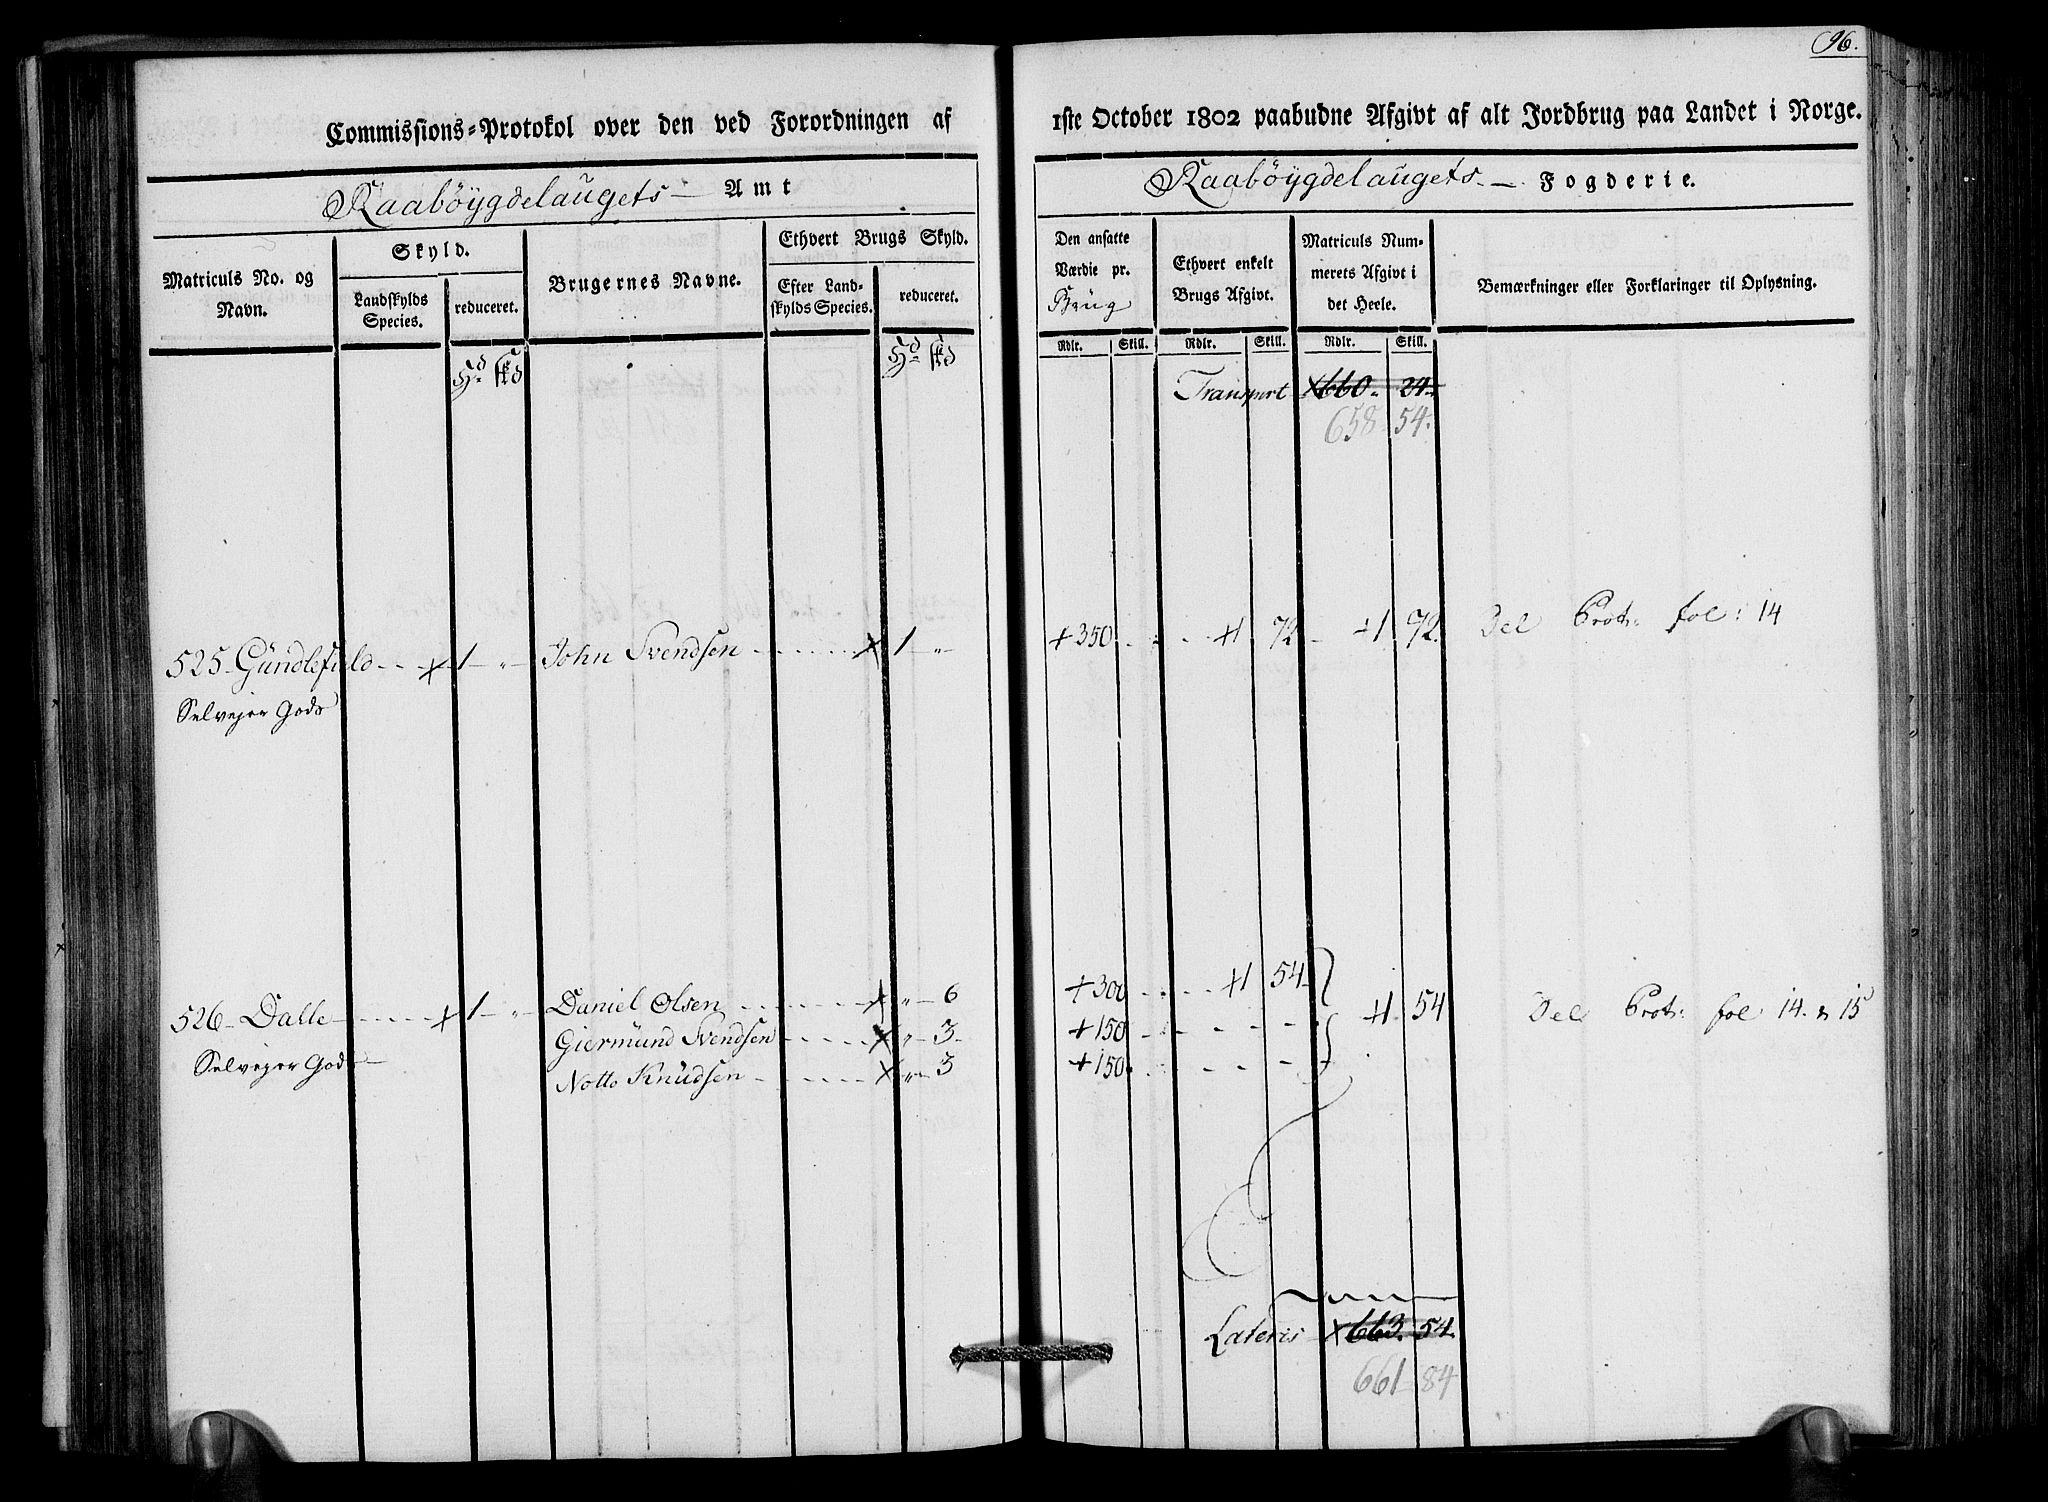 96.
Commissions-Protokol over den ved Forordningen af 1ste October 1802 paabudne Afgivt af alt Jordbrug paa Landet i Norge.
Raabøygdelaugets Amt
Raabøygdelaugets Fogderie.
Matriculs No. og Navn.
Skyld.
Landskylds Species.
reduceret.
Brugernes Navne.
Ethvert Brugs Skyld.
Efter Landskylds Species.
reduceret.
Den ansatte Værdie pr. Brüg
Ethvert enkelt Brugs Afgivt.
Matriculs Nummerets Afgivt i det Heele.
Bemærkninger eller Forklaringer til Oplysning.
Rdlr. Skill. Rdlr. Skill. Rdlr. Skill.
Hd skd Hd skd
Transport 660. 24.
658 54.
525 Gündlefuld 1 " John Svendsen 1 " 350 1 72 1 72. Del Prot: fol: 14
Selvejer Gods
526 Dalle 1 " Daniel Olsen " 6 300 1 54 1 54 Del Prot: fol 14. & 15
Giermünd Svendsen " 3 150
Selvejer Gods
Notto Knüdsen " 3 150
Lateris 663. 54.
661 84